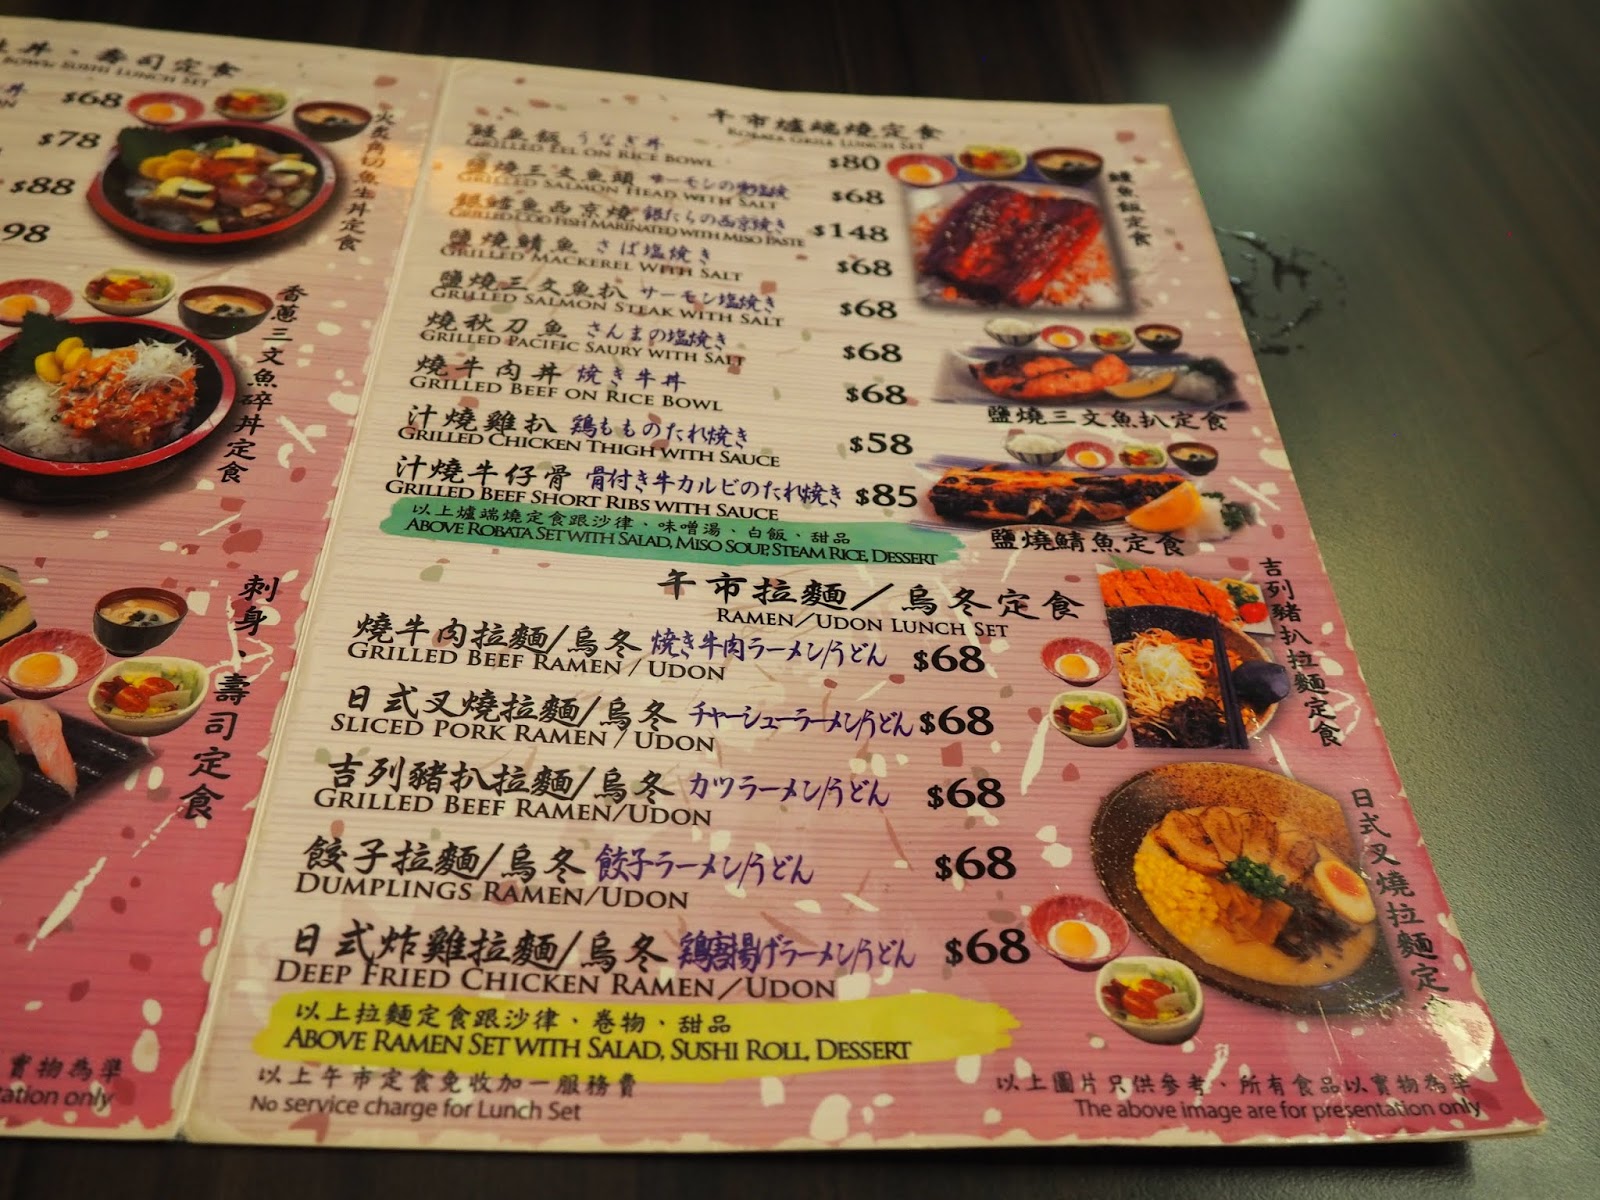 丼、壽司定食
Bowl Sushi Lunch Set
丼
$68
$78
$88
98
火炙角切魚生丼定食
香蔥三文魚碎丼定食
刺身、壽司定食
實物為準
tation only
午市爐端燒定食
Robata Grill Lunch Set
鰻魚飯 うなぎ丼
Grilled Eel on Rice Bowl $80
鹽燒三文魚頭 サーモンの兜塩焼
Grilled Salmon Head with Salt $68
銀鱈魚西京燒 銀だらの西京焼き
Grilled Cod Fish Marinated with Miso Paste $148
鹽燒鯖魚 さば塩焼き
Grilled Mackerel With Salt $68
鹽燒三文魚扒 サーモン塩焼き
Grilled Salmon Steak with Salt $68
燒秋刀魚 さんまの塩焼き
Grilled Pacific Saury with Salt $68
燒牛肉丼 焼き牛丼
Grilled Beef on Rice Bowl $68
汁燒雞扒 鶏もものたれ焼き
Grilled Chicken Thigh with Sauce $58
汁燒牛仔骨 骨付き牛カルビのたれ焼き
Grilled Beef Short Ribs with Sauce $85
以上爐端燒定食跟沙律、味噌湯、白飯、甜品
Above Robata Set with Salad, Miso Soup, Steam Rice, Dessert
鰻魚飯定食
鹽燒三文魚扒定食
鹽燒鯖魚定食
午市拉麵/烏冬定食
Ramen/Udon Lunch Set
燒牛肉拉麵/烏冬 焼き牛肉ラーメン/うどん $68
Grilled Beef Ramen / Udon
日式叉燒拉麵/烏冬 チャーシューラーメン/うどん $68
Sliced Pork Ramen / Udon
吉列豬扒拉麵/烏冬 カツラーメン/うどん $68
Grilled Beef Ramen/Udon
餃子拉麵/烏冬 餃子ラーメン/うどん $68
Dumplings Ramen/Udon
日式炸雞拉麵/烏冬 鶏唐揚げラーメン/うどん $68
Deep Fried Chicken Ramen/Udon
以上拉麵定食跟沙律、卷物、甜品
Above Ramen Set with Salad, Sushi Roll, Dessert
吉列豬扒拉麵定食
日式叉燒拉麵定食
以上午市定食免收加一服務費
No service charge for Lunch Set
以上圖片只供參考、所有食品以實物為準
The above image are for presentation only